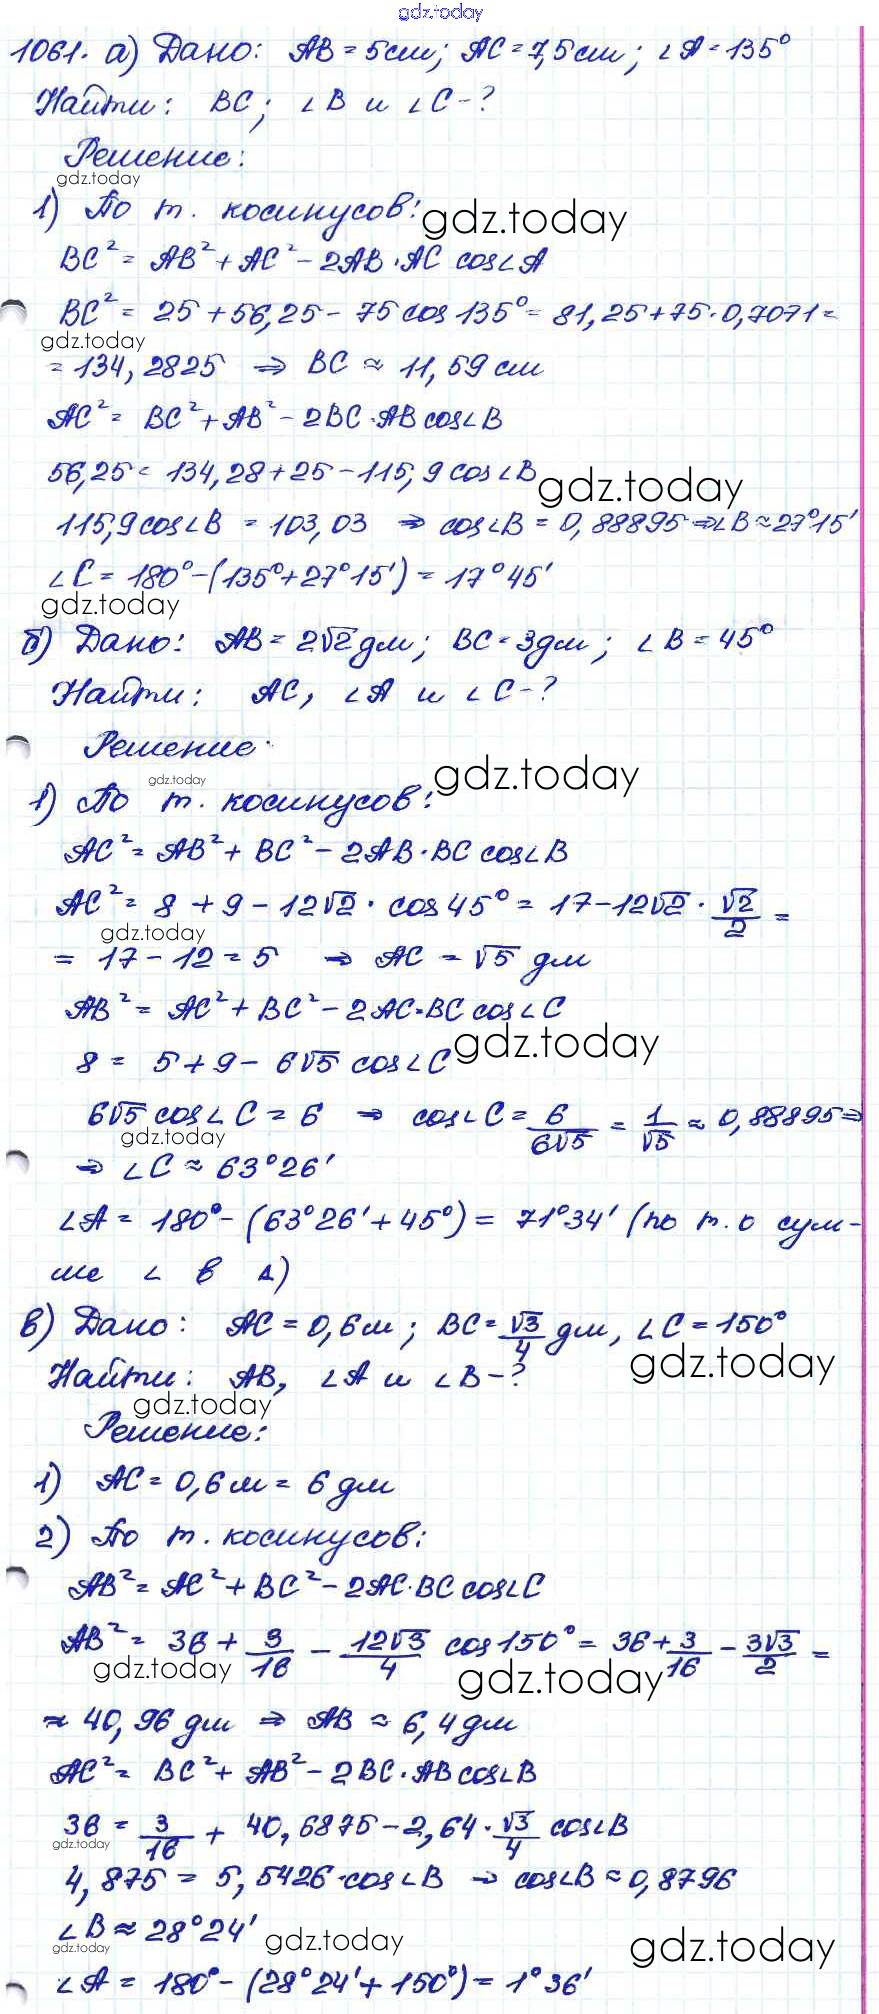 gdz.today
1061. а) Дано: AB = 5см; AC = 7,5см; ∠A = 135°
Найти: BC; ∠B и ∠C - ?
Решение:
gdz.today
1) По т. косинусов: gdz.today
BC² = AB² + AC² - 2AB · AC cos∠A
BC² = 25 + 56,25 - 75 cos 135° = 81,25 + 75 · 0,7071 =
gdz.today
= 134,2825 ⇒ BC ≈ 11,59 см
AC² = BC² + AB² - 2BC · AB cos∠B
56,25 = 134,28 + 25 - 115,9 cos∠B gdz.today
115,9 cos∠B = 103,03 ⇒ cos∠B = 0,88895 ⇒ ∠B ≈ 27°15'
∠C = 180° - (135° + 27°15') = 17°45'
gdz.today
б) Дано: AB = 2√2 дм; BC = 3дм; ∠B = 45°
Найти: AC, ∠A и ∠C - ?
Решение:
gdz.today gdz.today
1) По т. косинусов:
AC² = AB² + BC² - 2AB · BC cos∠B
AC² = 8 + 9 - 12√2 · cos 45° = 17 - 12√2 · √2/2 =
gdz.today
= 17 - 12 = 5 ⇒ AC = √5 дм
AB² = AC² + BC² - 2AC · BC cos∠C
8 = 5 + 9 - 6√5 cos∠C gdz.today
6√5 cos∠C = 6 ⇒ cos∠C = 6/6√5 = 1/√5 ≈ 0,88895 ⇒
gdz.today
⇒ ∠C ≈ 63°26'
∠A = 180° - (63°26' + 45°) = 71°34' (по т. о сум-
ме ∠ в Δ)
в) Дано: AC = 0,6м; BC = √3/4 дм, ∠C = 150°
Найти: AB, ∠A и ∠B - ? gdz.today
gdz.today
Решение:
1) AC = 0,6 м = 6 дм
2) По т. косинусов:
AB² = AC² + BC² - 2AC · BC cos∠C
AB² = 36 + 3/16 - 12√3/4 cos 150° = 36 + 3/16 - 3√3/2 =
gdz.today gdz.today
≈ 40,96 дм ⇒ AB ≈ 6,4 дм
AC² = BC² + AB² - 2BC · AB cos∠B
36 = 3/16 + 40,6875 - 2,64 · √3/4 cos∠B
gdz.today
4,875 = 5,5426 · cos∠B ⇒ cos∠B ≈ 0,8796
∠B ≈ 28°24'
gdz.today gdz.today gdz.today
∠A = 180° - (28°24' + 150°) = 1°36'